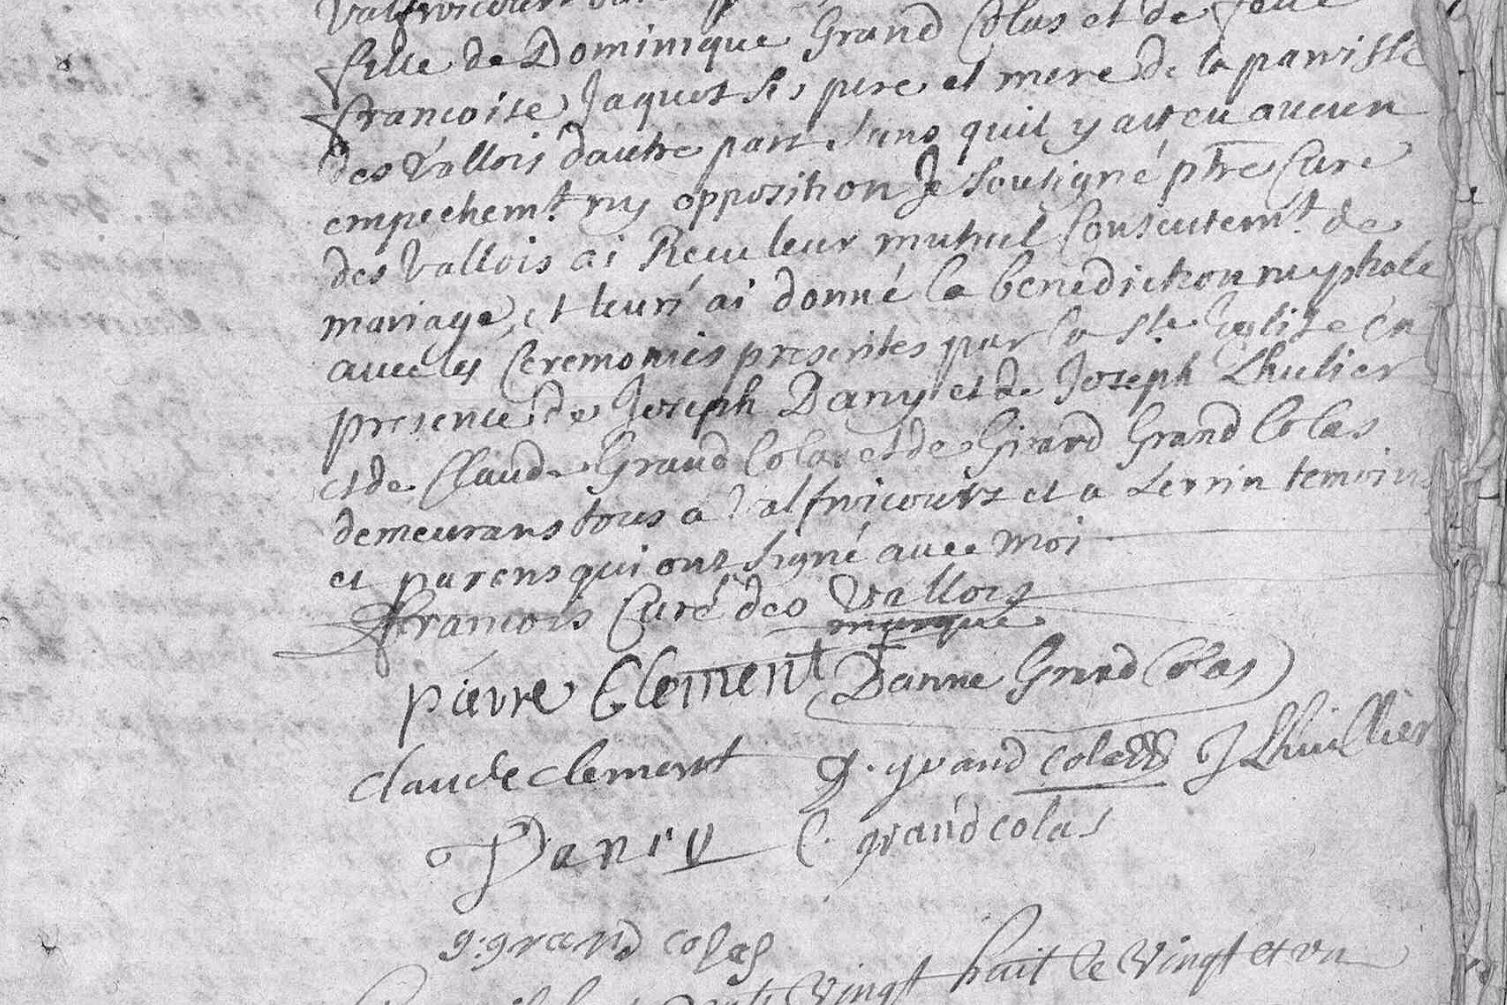 Valfroicourt
fille de Dominique Grand Colas et de feue
francoise Jaquot ses pere et mere de la paroisse
des Vallois dautre part sans quil y ait eu aucun
empechemt. ny opposition Je Sousigné ptre Curé
des Vallois ai Receu leur mutuel Consentemt. de
mariage, et leur ai donné la benediction nuptiale
avec les Ceremonies prescrites par la Ste. Eglise en
presence de Joseph Dany et de Joseph Lhulier
et de Claude Grand Colas et de Girard Grand Colas
demeurans tous a Valfroicourt et a Lerrin temoins
et parens qui ont signé avec moi
francois Curé des Vallois
marque
pierre Clement Danne Grand Colas
claude clement g. grand colas J Lhuillier
Dany C. grand colas
g. grand colas
Vingt huit le Vingt et un